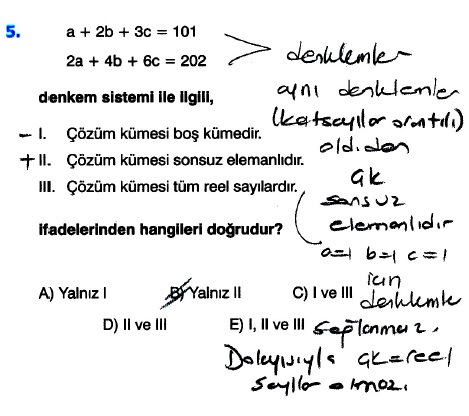 5.
a + 2b + 3c = 101
2a + 4b + 6c = 202
denkem sistemi ile ilgili,
– I. Çözüm kümesi boş kümedir.
+ II. Çözüm kümesi sonsuz elemanlıdır.
III. Çözüm kümesi tüm reel sayılardır.
ifadelerinden hangileri doğrudur?
A) Yalnız I
B) Yalnız II
C) I ve III
D) II ve III
E) I, II ve III
denklemler
aynı denklemler
(katsayılar orantılı)
old.dan
ÇK
sonsuz
elemanlıdır
a=1 b=1 c=1
için
denklemler
sağlanmaz.
Dolayısıyla ÇK=reel
sayılar olmaz.